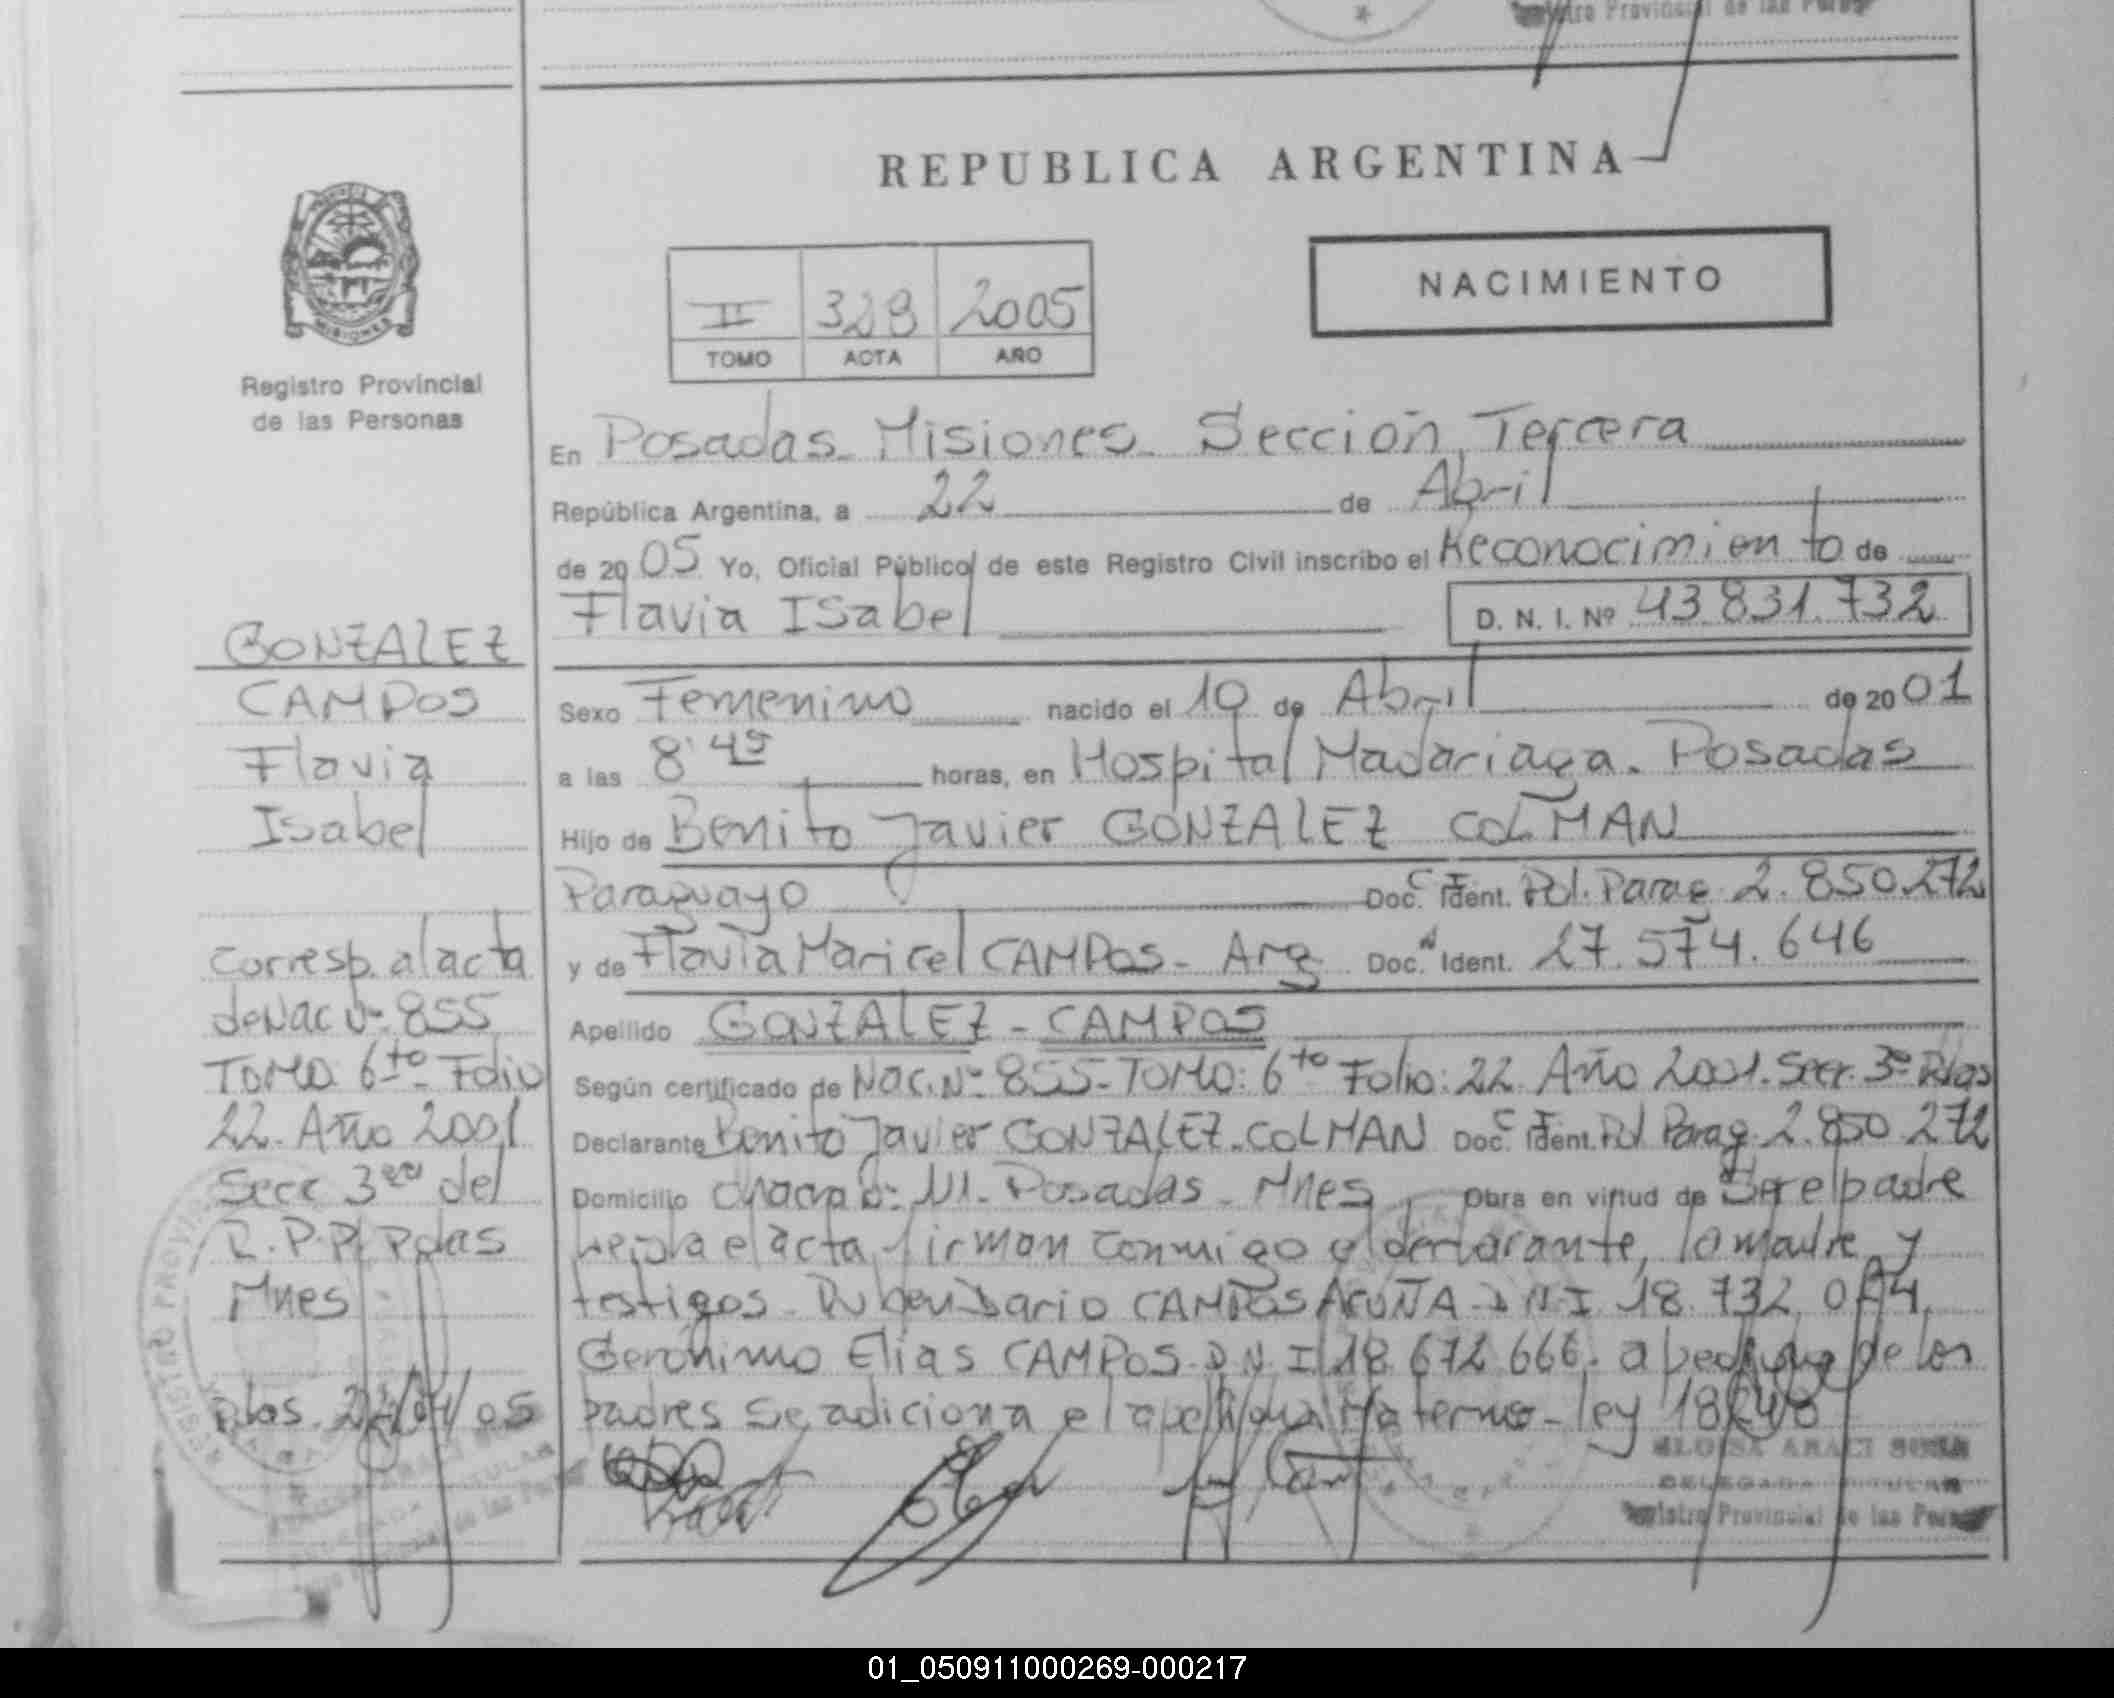 Registro Provincial de las Personas
REPUBLICA ARGENTINA
MISIONES
Registro Provincial
de las Personas
II 329 2005
TOMO ACTA AÑO
NACIMIENTO
En Posadas - Misiones - Sección Tercera
República Argentina, a 22 de Abril
de 2005 Yo, Oficial Público de este Registro Civil inscribo el Reconocimiento de
Flavia Isabel D. N. I. Nº 43.831.732
Sexo Femenino nacido el 10 de Abril de 2001
a las 8'45 horas, en Hospital Madariaga. Posadas
Hijo de Benito Javier GONZALEZ COLMAN
Paraguayo Doc. C I Ident. Pol. Parag. 2.850.272
y de Flavia Maricel CAMPOS - Arg Doc. N Ident. 27.574.646
Apellido GONZALEZ - CAMPOS
Según certificado de Nac. Nº 855 - TOMO: 6to Folio: 22 Año 2001. Secc. 3º Pdas
Declarante Benito Javier GONZALEZ - COLMAN Doc. C I Ident. Pol Parag. 2.850.272
Domicilio Posadas - Mnes Obra en virtud de Ser el padre
el acta, firman conmigo el declarante, la madre y
testigos - Ruben Dario CAMPOS ACUÑA - D N I 18.732.
Gerónimo Elias CAMPOS - D. N. I 18.672.666. a de los
padres se adiciona el apellido Materno - ley 18248
ELOISA ARACI
DELEGADA TITULAR
Registro Provincial de las Personas
GONZALEZ
CAMPOS
Flavia
Isabel
Corresp. al acta
de Nac Nº 855
TOMO 6to - Folio
22. Año 2001
Secc 3era del
R.P.P. Pdas
Mnes
Pdas. 22/04/05
01_050911000269-000217